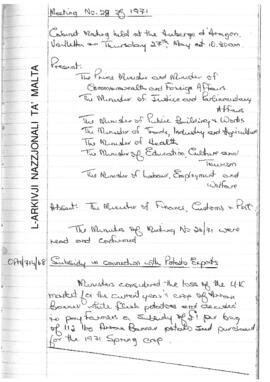 Meeting No. 28 of 1971
Cabinet Meeting held at the Auberge d'Aragon,
Valletta on Thursday 27th May at 10.30am.
Present:
The Prime Minister and Minister of
Commonwealth and Foreign Affairs
The Minister of Justice and Parliamentary
Affairs
The Minister of Public Building & Works
The Minister of Trade, Industry and Agriculture
The Minister of Health
The Minister of Education, Culture and
Tourism
The Minister of Labour, Employment and
Welfare
Absent: The Minister of Finance, Customs & Port
The Minutes of Meeting No 26/71 were
read and confirmed
Subsidy in connection with Potato Exports
Ministers considered the loss of the U.K
market for the current year's crop of Arran
Banner white flesh potatoes and decided
to pay farmers a subsidy of £1 per bag
of 112 lbs Arran Banner potato seed purchased
for the 1971 Spring crop.
L-ARKIVJI NAZZJONALI TA' MALTA